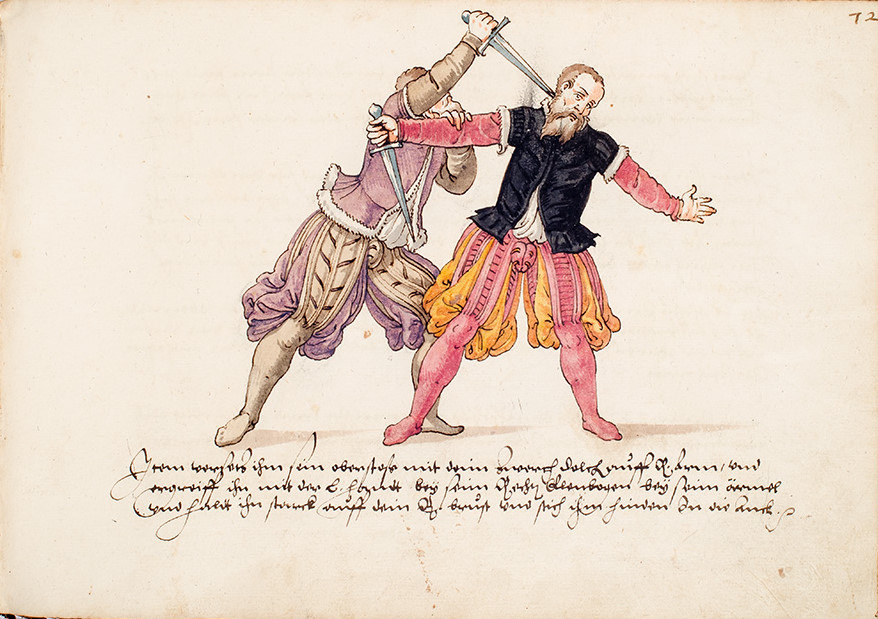 72
Item versetz ihm sein oberstoss mit deim Zwerch dolch auff R. arm, und
ergreiff ihn mit der L. handt bey seim Rechtn Elenbogen bey seim ärmel
und halt ihn starck auff dein R. brust und stich ihm hinden In die Anck